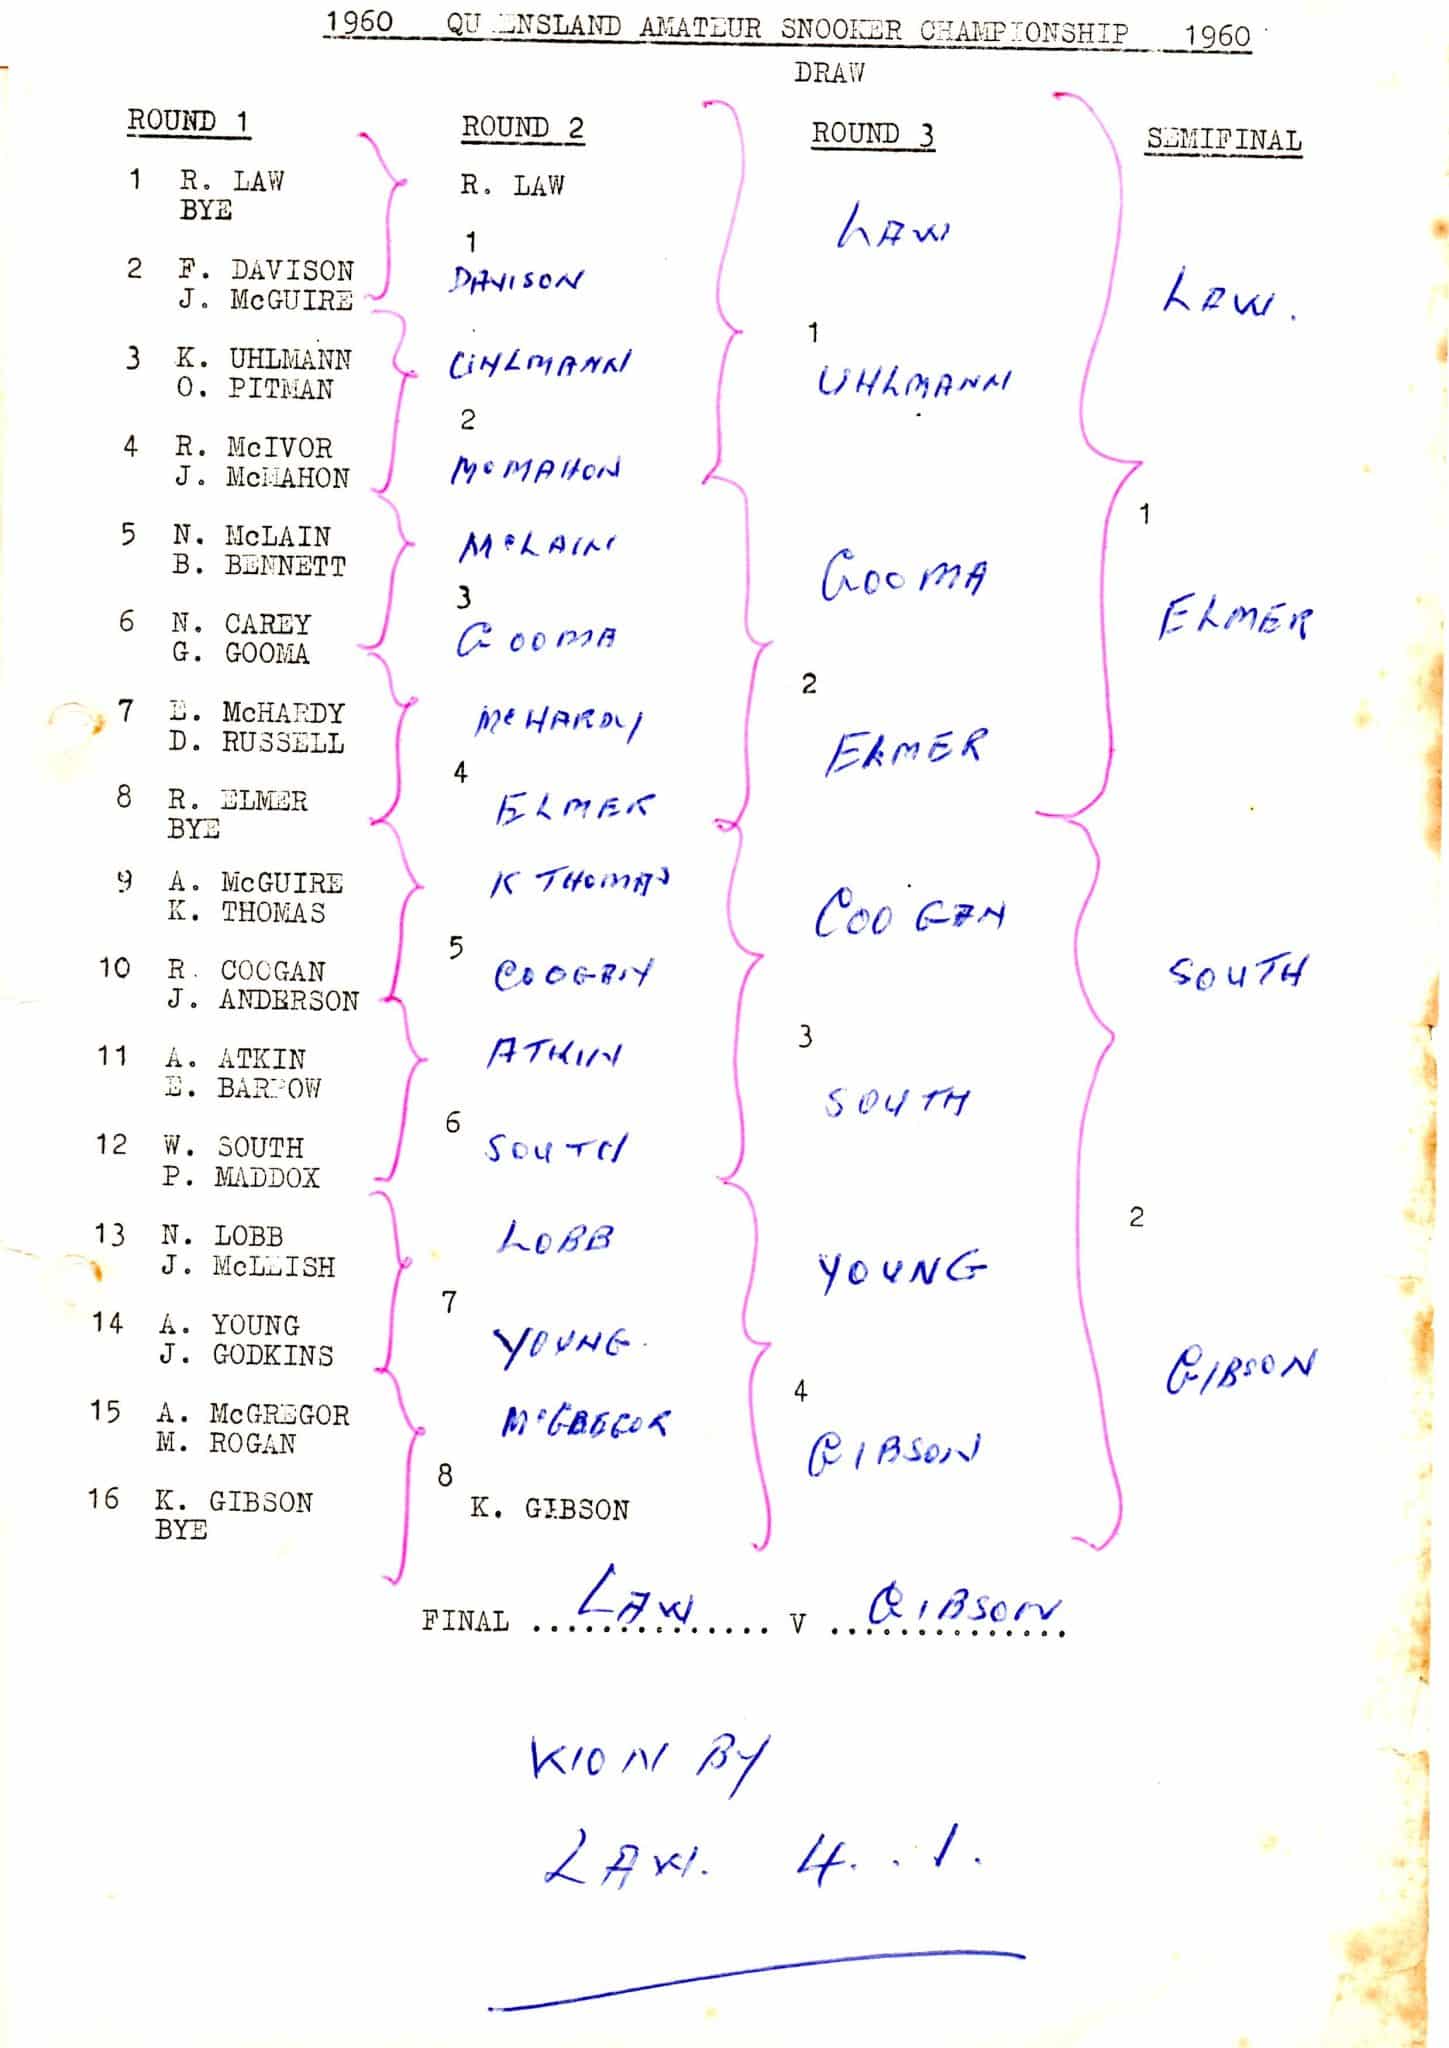 1960 QUEENSLAND AMATEUR SNOOKER CHAMPIONSHIP 1960
DRAW
ROUND 1
1 R. LAW
BYE
2 F. DAVISON
J. McGUIRE
3 K. UHLMANN
O. PITMAN
4 R. McIVOR
J. McMAHON
5 N. McLAIN
B. BENNETT
6 N. CAREY
G. GOOMA
7 E. McHARDY
D. RUSSELL
8 R. ELMER
BYE
9 A. McGUIRE
K. THOMAS
10 R. COOGAN
J. ANDERSON
11 A. ATKIN
E. BARROW
12 W. SOUTH
P. MADDOX
13 N. LOBB
J. McLEISH
14 A. YOUNG
J. GODKINS
15 A. McGREGOR
M. ROGAN
16 K. GIBSON
BYE
ROUND 2
R. LAW
1
DAVISON
UHLMANN
2
McMAHON
McLAIN
3
GOOMA
McHARDY
4
ELMER
K THOMAS
5
COOGAN
ATKIN
6
SOUTH
LOBB
7
YOUNG.
McGREGOR
8
K. GIBSON
ROUND 3
LAW
1
UHLMANN
GOOMA
2
ELMER
COOGAN
3
SOUTH
YOUNG
4
GIBSON
SEMIFINAL
LAW.
1
ELMER
SOUTH
2
GIBSON
FINAL ...LAW... V ...GIBSON...
WON BY
LAW. 4..1.